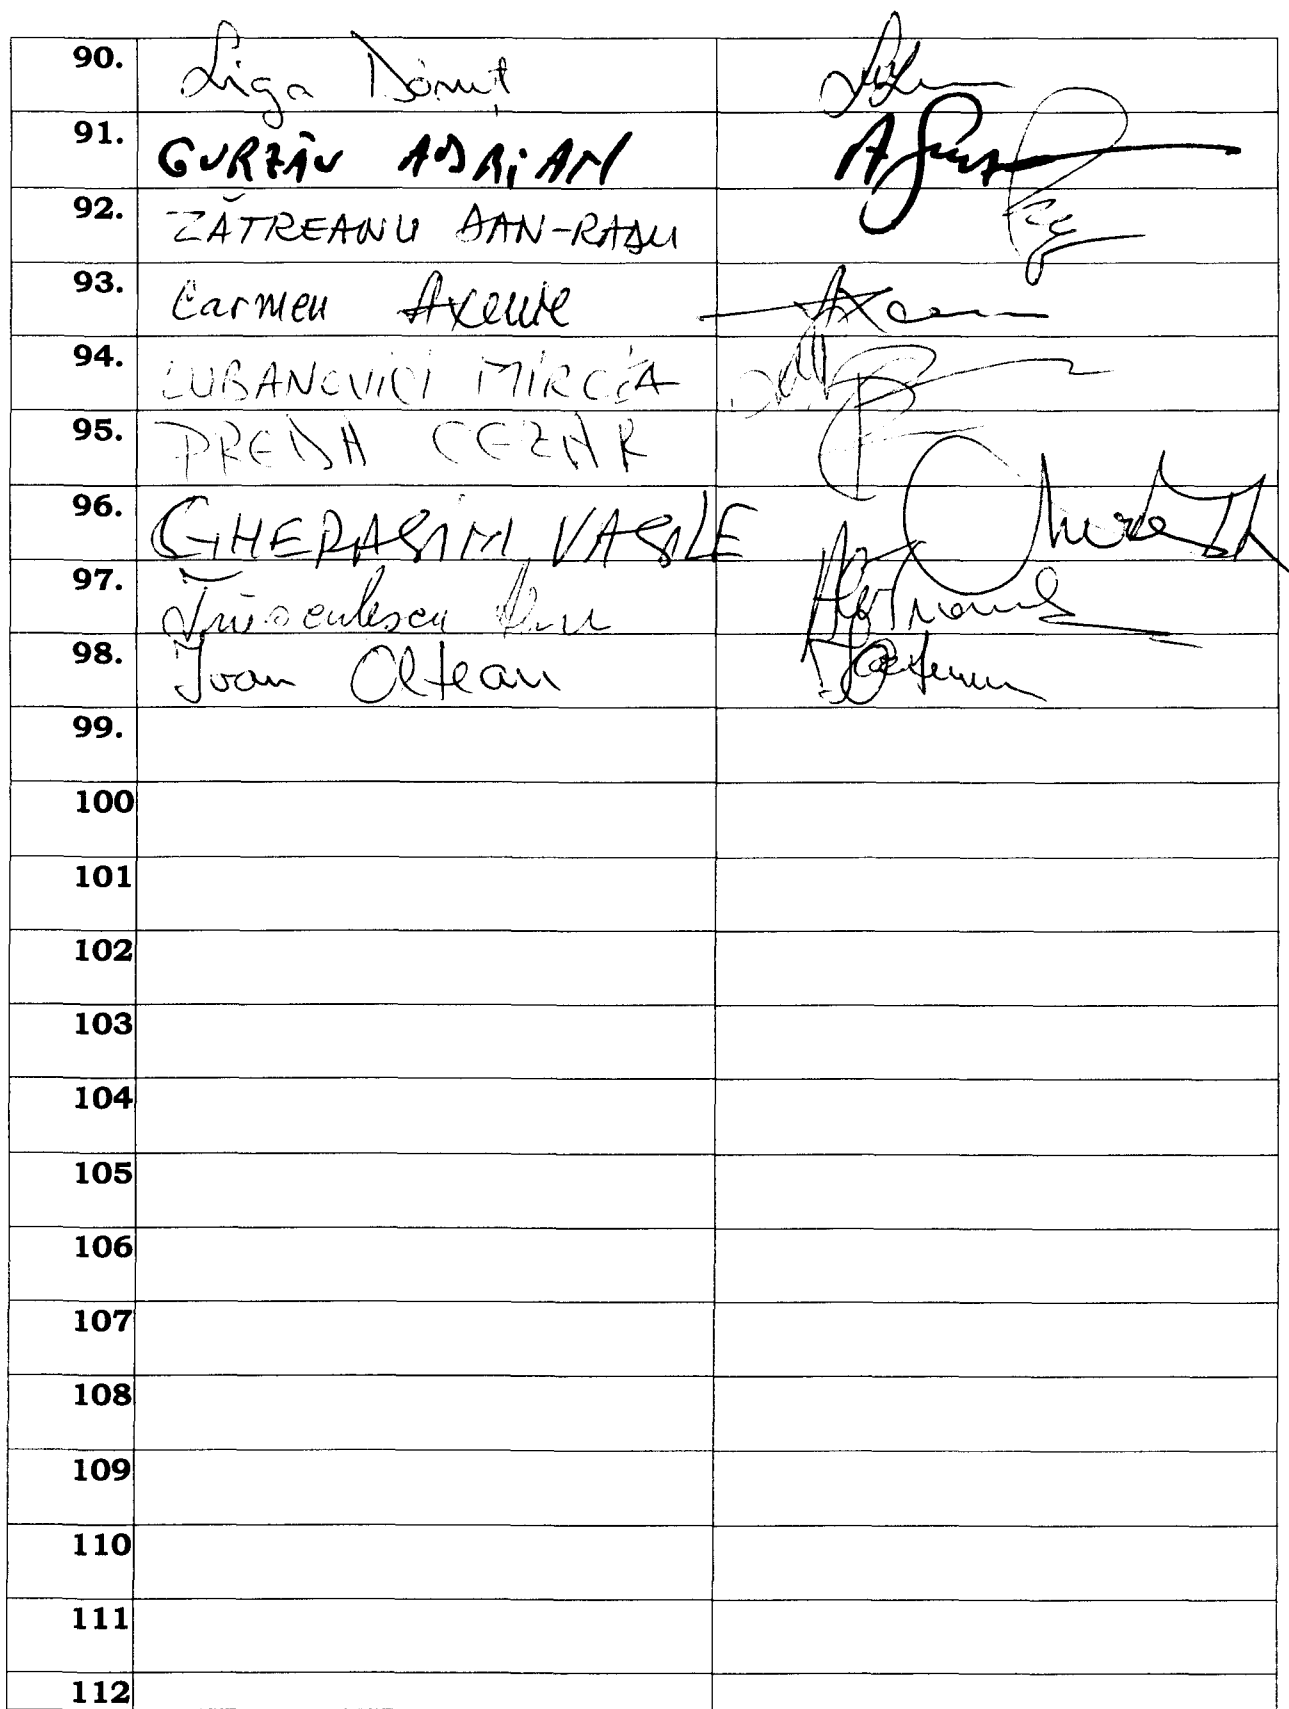 90. Liga Dănuț
91. GURZĂU ADRIAN
92. ZĂTREANU DAN-RADU
93. Carmen Axenie
94. LUBANOVICI MIRCEA
95. PREDA CEZAR
96. GHERASIM VASILE
97.
98. Ioan Oltean
99.
100
101
102
103
104
105
106
107
108
109
110
111
112